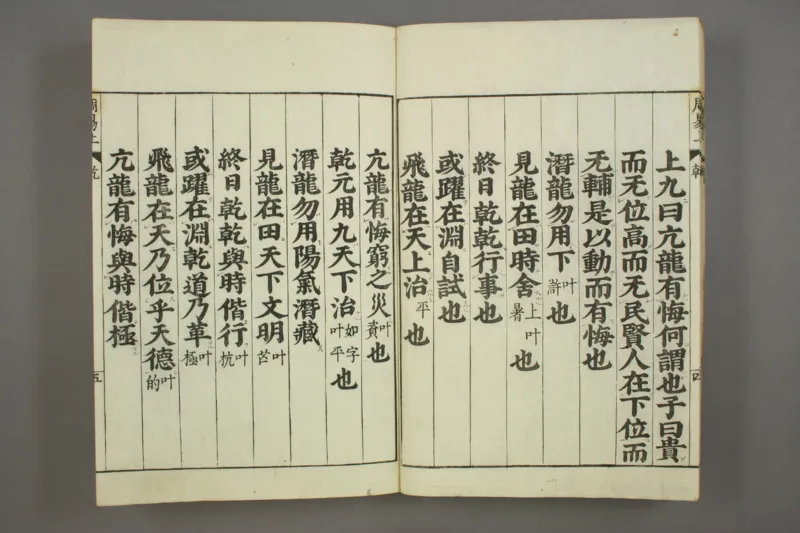 上九曰亢龍有悔何謂也子曰貴
而无位高而无民賢人在下位而
无輔是以動而有悔也
潛龍勿用下叶滸也
見龍在田時舍上叶暑也
終日乾乾行事也
或躍在淵自試也
飛龍在天上治平也
亢龍有悔窮之災叶資也
乾元用九天下治如字叶平也
潛龍勿用陽氣潛藏
見龍在田天下文明叶芒
終日乾乾與時偕行叶杭
或躍在淵乾道乃革叶極
飛龍在天乃位乎天德叶的
亢龍有悔與時偕極
周易上
乾
四
周易上
乾
五